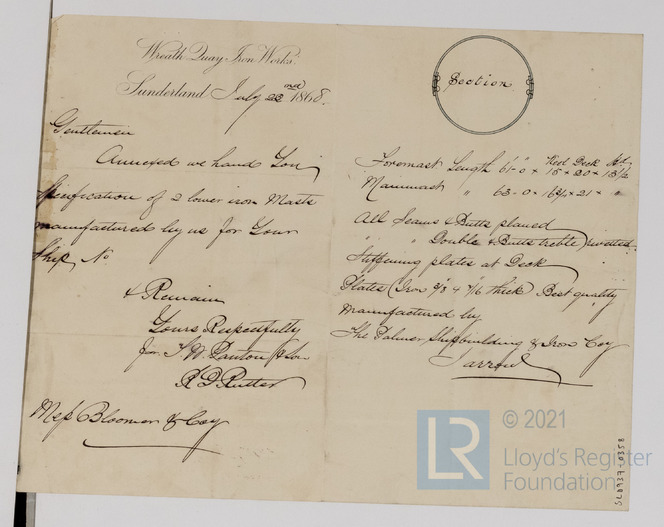 Wreath Quay Iron Works.
Sunderland July 22nd 1868.
Gentlemen
Annexed we hand You
Specification of 2 lower iron Masts
manufactured by us for Your
Ship No
& Remain
Yours Respectfully
for J. W. Panton & Son
R D Rutter
Mess Bloomer & Coy
Section
Heel Deck Hd
Foremast Length 61-0 x 15 x 20 x 13/2
Mainmast " 63-0 x 16/4 x 21 x "
All Seams & Butts planed
" " Double & Butts treble rivetted.
Stiffening plates at Deck
Plates (Iron 3/8 & 7/16 thick) Best quality
Manufactured by
The Palmer Shipbuilding & Iron Coy
Jarrow
LR
© 2021
Lloyd's Register
Foundation